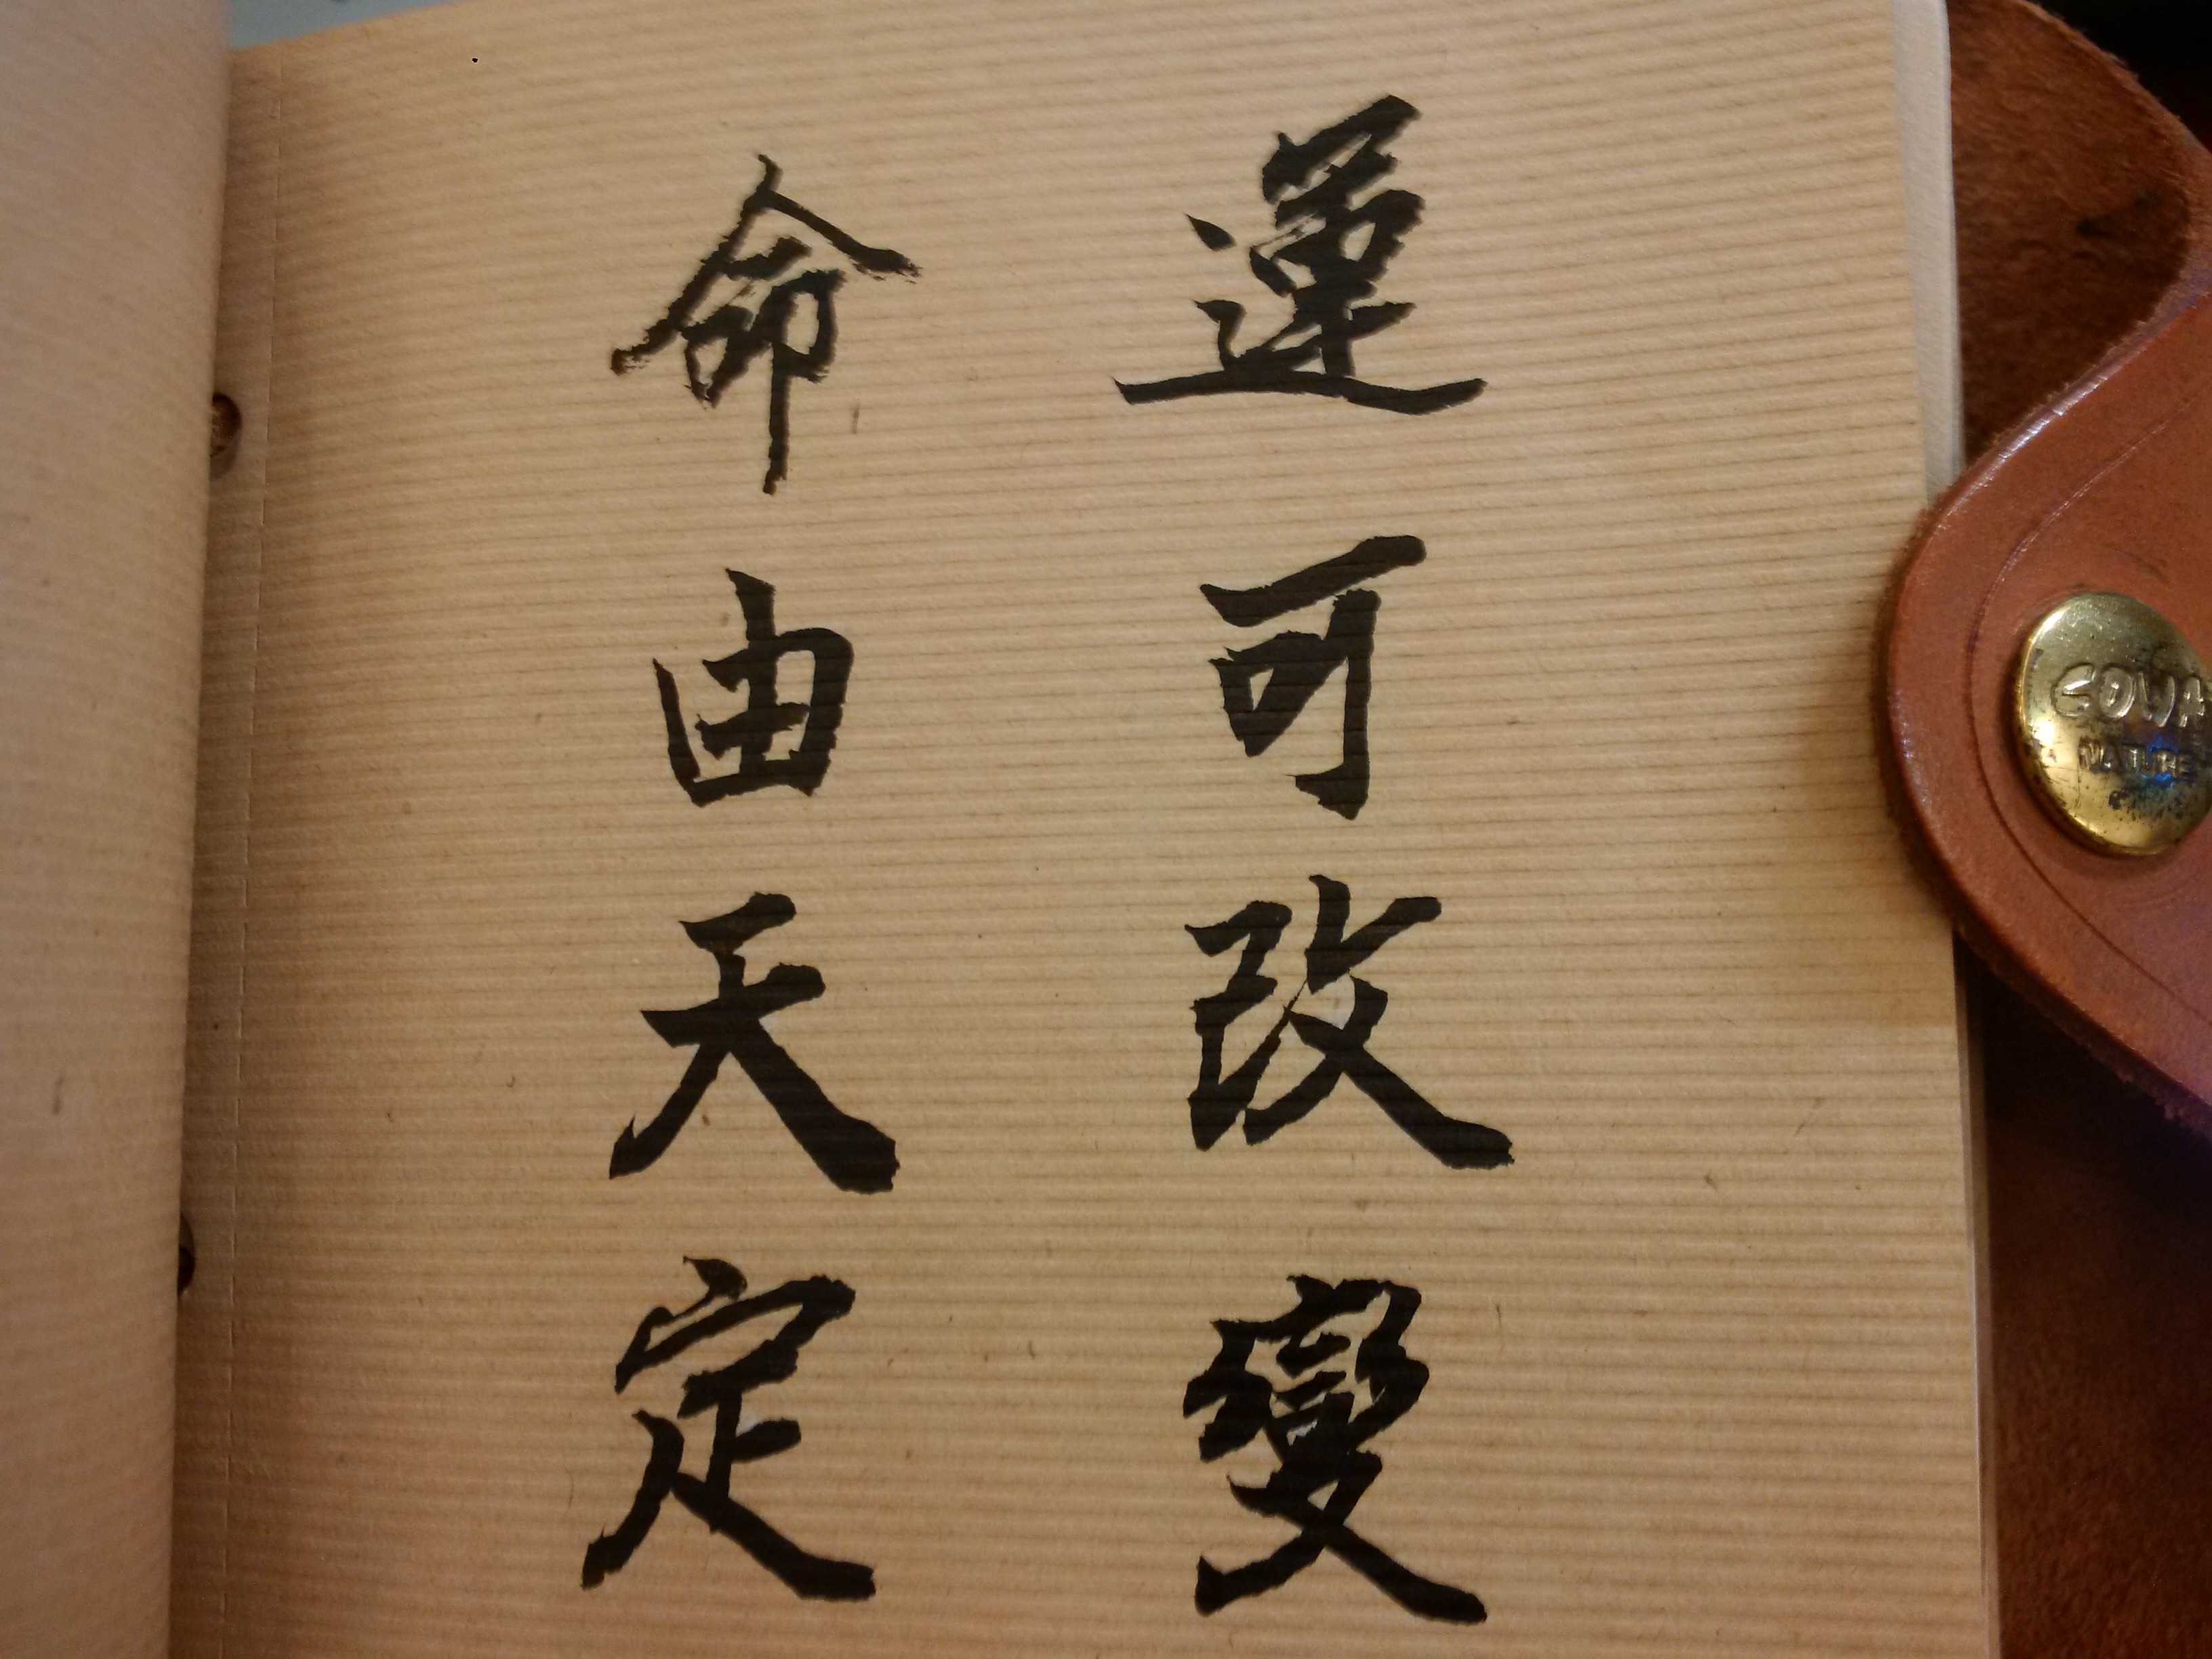 運可改變
命由天定
NATURE